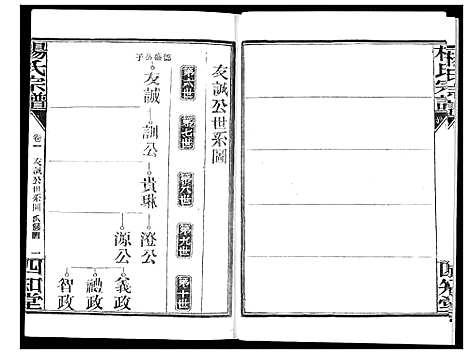 楊氏宗譜
友誠公世系圖
第六世
第七世
第八世
第九世
第十世
友誠
訓公
貴琳
澄公
源公
義政
禮政
智政
楊氏宗譜
卷一
友誠公世系圖
一
四知堂